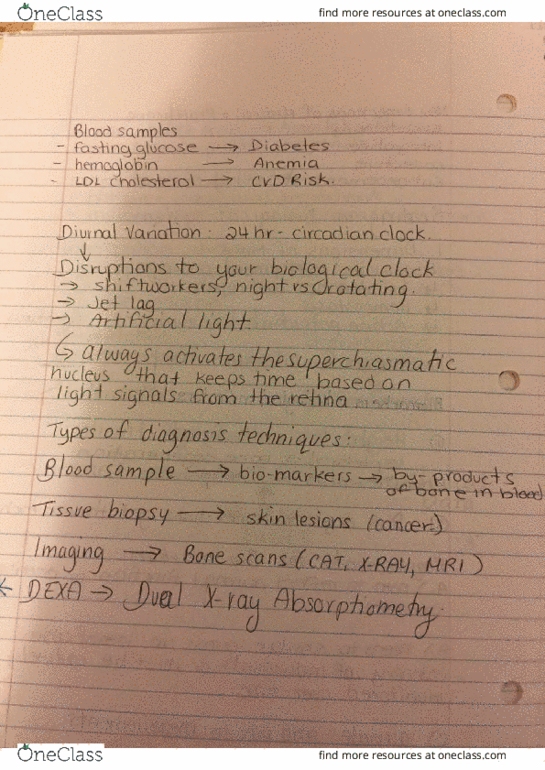 OneClass
find more resources at oneclass.com
Blood samples
- fasting glucose → Diabetes
- hemoglobin → Anemia
- LDL cholesterol → CVD Risk.
Diurnal Variation: 24 hr - circadian clock.
↓
Disruptions to your biological clock
→ shiftworkers, night vs rotating.
→ Jet lag
→ Artificial light
↳ always activates the superchiasmatic
nucleus that keeps time based on
light signals from the retina
Types of diagnosis techniques:
Blood sample → bio-markers → by-products
of bone in blood
Tissue biopsy → skin lesions (cancer)
Imaging → Bone scans (CAT, X-RAY, MRI)
DEXA → Dual X-ray Absorptiometry.
OneClass
find more resources at oneclass.com